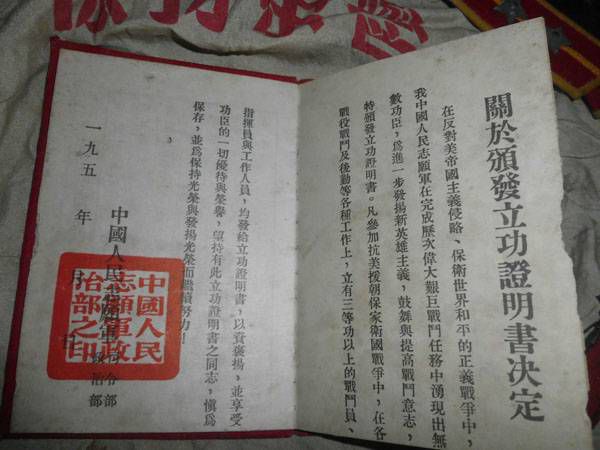 關於頒發立功證明書决定
在反對美帝國主義侵略、保衛世界和平的正義戰爭中，
我中國人民志願軍在完成歷次偉大艱巨戰鬥任務中湧現出無
數功臣，爲進一步發揚新英雄主義，鼓舞與提高戰鬥意志，
特頒發立功證明書。凡參加抗美援朝保家衛國戰爭中，在各
戰役戰鬥及後勤等各種工作上，立有三等功以上的戰鬥員、
指揮員與工作人員，均發給立功證明書，以資褒揚，並享受
功臣的一切優待與榮譽，望持有此立功證明書之同志，愼爲
保存，並爲保持光榮與發揚光榮而繼續努力！
中國人民志願軍
司令部
政治部
一九五 年 月 日
中國人民
志願軍政
治部之印